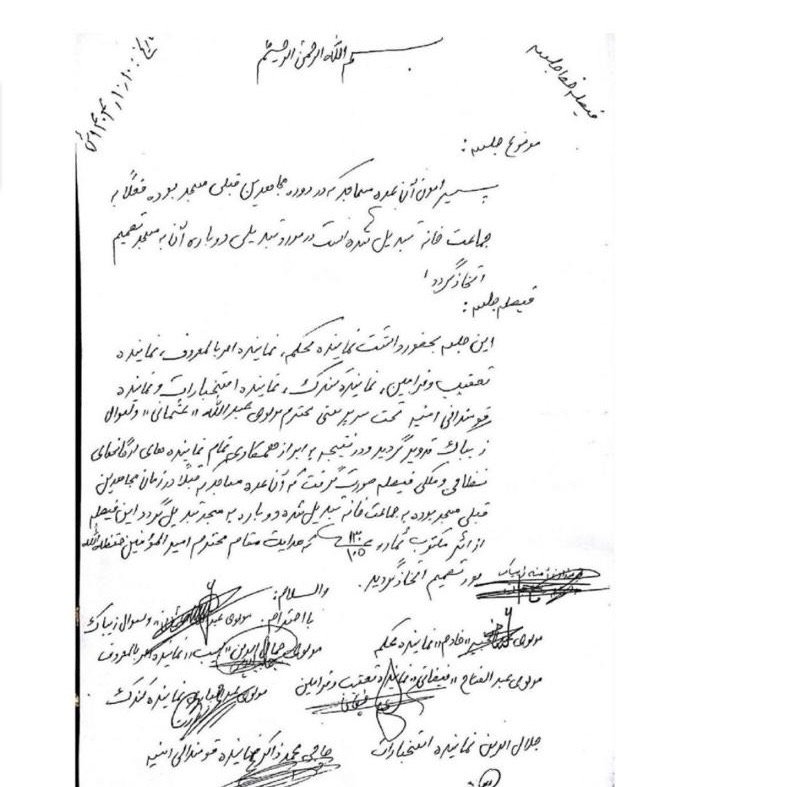 بسم الله الرحمن الرحیم
فیصله خط جلسه
موضوع جلسه:
پیرامون آنعده مساجد که در دوره مجاهدین قبلی مسجد بوده فعلاً به
جماعت خانه تبدیل شده است در مورد تبدیلی دوباره آن به مسجد تصمیم
اتخاذ گردد،
فیصله جلسه:
این جلسه بحضور داشت نماینده محکمه، نماینده امر بالمعروف، نماینده
تعقیب و فرامین، نماینده گمرک، نماینده استخبارات و نماینده
قومندانی امنیه تحت سرپرستی محترم مولوی عبدالله "عثمانی" ولسوال
زیباک تدویر گردید و در نتیجه به ابراز همکاری تمام نماینده های ارگانهای
نظامی و ملکی فیصله صورت گرفت که آنعده مساجد که قبلاً در زمان مجاهدین
قبلی مسجد بوده به جماعت خانه تبدیل شده دوباره به مسجد تبدیل گردد این فیصله
از اثر مکتوب شماره که هدایت مقام محترم امیر المؤمنین حفظه الله
تصمیم اتخاذ گردید.
والسلام:
با احترام: مولوی ولسوال زیباک
مولوی "خادم" نماینده محکمه
مولوی نماینده امر بالمعروف
مولوی عبدالفتاح نماینده تعقیب و فرامین
مولوی نماینده گمرک
جلال الدین نماینده استخبارات
حاجی محمد ذاکر نماینده قومندانی امنیه